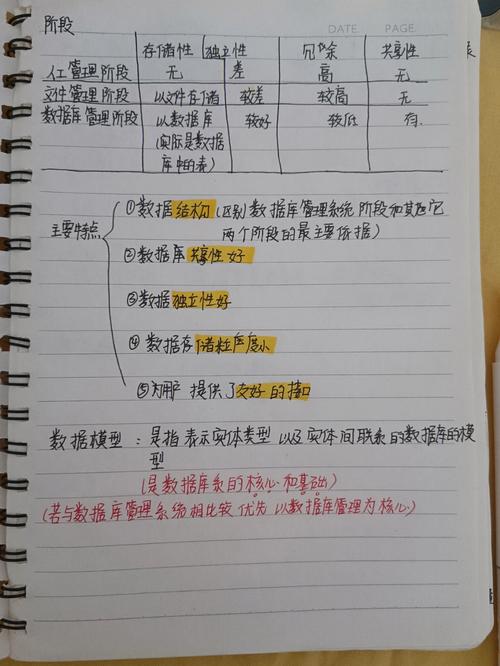 阶段
DATE PAGE
存储性 独立性 冗余 共享性
人工管理阶段 无 差 高 无
文件管理阶段 以文件存储 较差 较高 无
数据库管理阶段 以数据库 较好 较低 有.
(实际是数据
库中的表)
主要特点
①数据结构化(区别)数据库管理系统阶段和其它
两个阶段的最主要依据)
②数据库共享性好
③数据独立性好
④数据存储粒度小
⑤为用户提供了友好的接口
数据模型:是指表示实体类型以及实体间联系的数据库的模
型
(是数据库系的核心和基础)
(若与数据库管理系统相比较优先以数据库管理为核心)